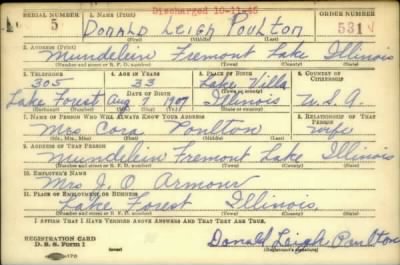 Discharged 10-11-45
SERIAL NUMBER 1. NAME (Print) ORDER NUMBER
5 Donald Leigh Poulton 531
(First) (Middle) (Last)
2. ADDRESS (Print)
Mundelein Fremont Lake Illinois
(Number and street or R. F. D. number) (Town) (County) (State)
3. TELEPHONE 4. AGE IN YEARS 5. PLACE OF BIRTH 6. COUNTRY OF CITIZENSHIP
305 33 Lake Villa
DATE OF BIRTH
Lake Forest Aug 1907 Illinois U.S.A.
7. NAME OF PERSON WHO WILL ALWAYS KNOW YOUR ADDRESS 8. RELATIONSHIP OF THAT PERSON
Mrs Cora Poulton wife
(Mr., Mrs., Miss) (First) (Middle) (Last)
9. ADDRESS OF THAT PERSON
Mundelein Fremont Lake Illinois
(Number and street or R. F. D. number) (Town) (County) (State)
10. EMPLOYER'S NAME
Mrs J. O. Armour
11. PLACE OF EMPLOYMENT OR BUSINESS
Lake Forest Illinois
(Number and street or R. F. D. number) (Town) (County) (State)
I AFFIRM THAT I HAVE VERIFIED ABOVE ANSWERS AND THAT THEY ARE TRUE.
REGISTRATION CARD
D. S. S. Form 1
Donald Leigh Poulton
(Registrant's signature)